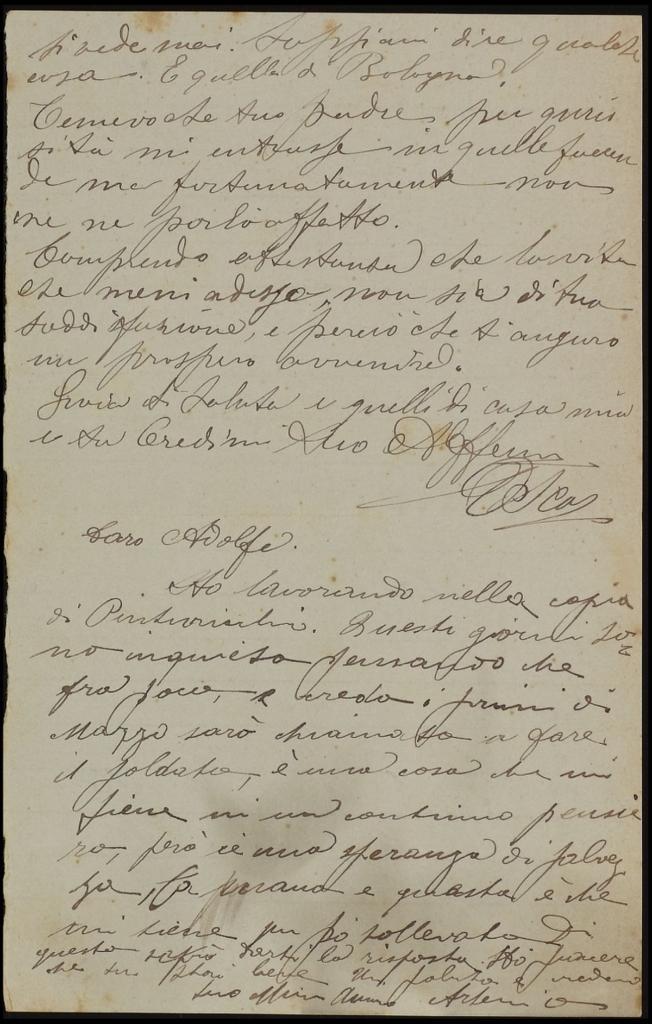 si vede mai. Sappiami dire qualche
cosa. E quella di Bologna?
Temevo che tuo padre per curio
sità mi entrasse in quelle faccen
de ma fortunatamente non
me ne parlò affatto.
Comprendo che la vita
che meni adesso, non sia di tua
soddisfazione, e perciò che t'auguro
un prospero avvenire.
ti saluta e quelli di casa mia
e tu Credimi tuo Aff
Caro Adolfo.
Sto lavorando nella copia
di Pinturicchio. Questi giorni so
no inquieto pensando che
fra poco, e credo i primi di
Marzo sarò chiamato a fare
il soldato, è una cosa che mi
tiene in un continuo pensie
ro, però c'è una speranza di salvez
za, e questa è che
mi tiene un pò sollevato Di
questo saprò darti la risposta. Ho piacere
che tu stai bene Un saluto e
tuo Artemio